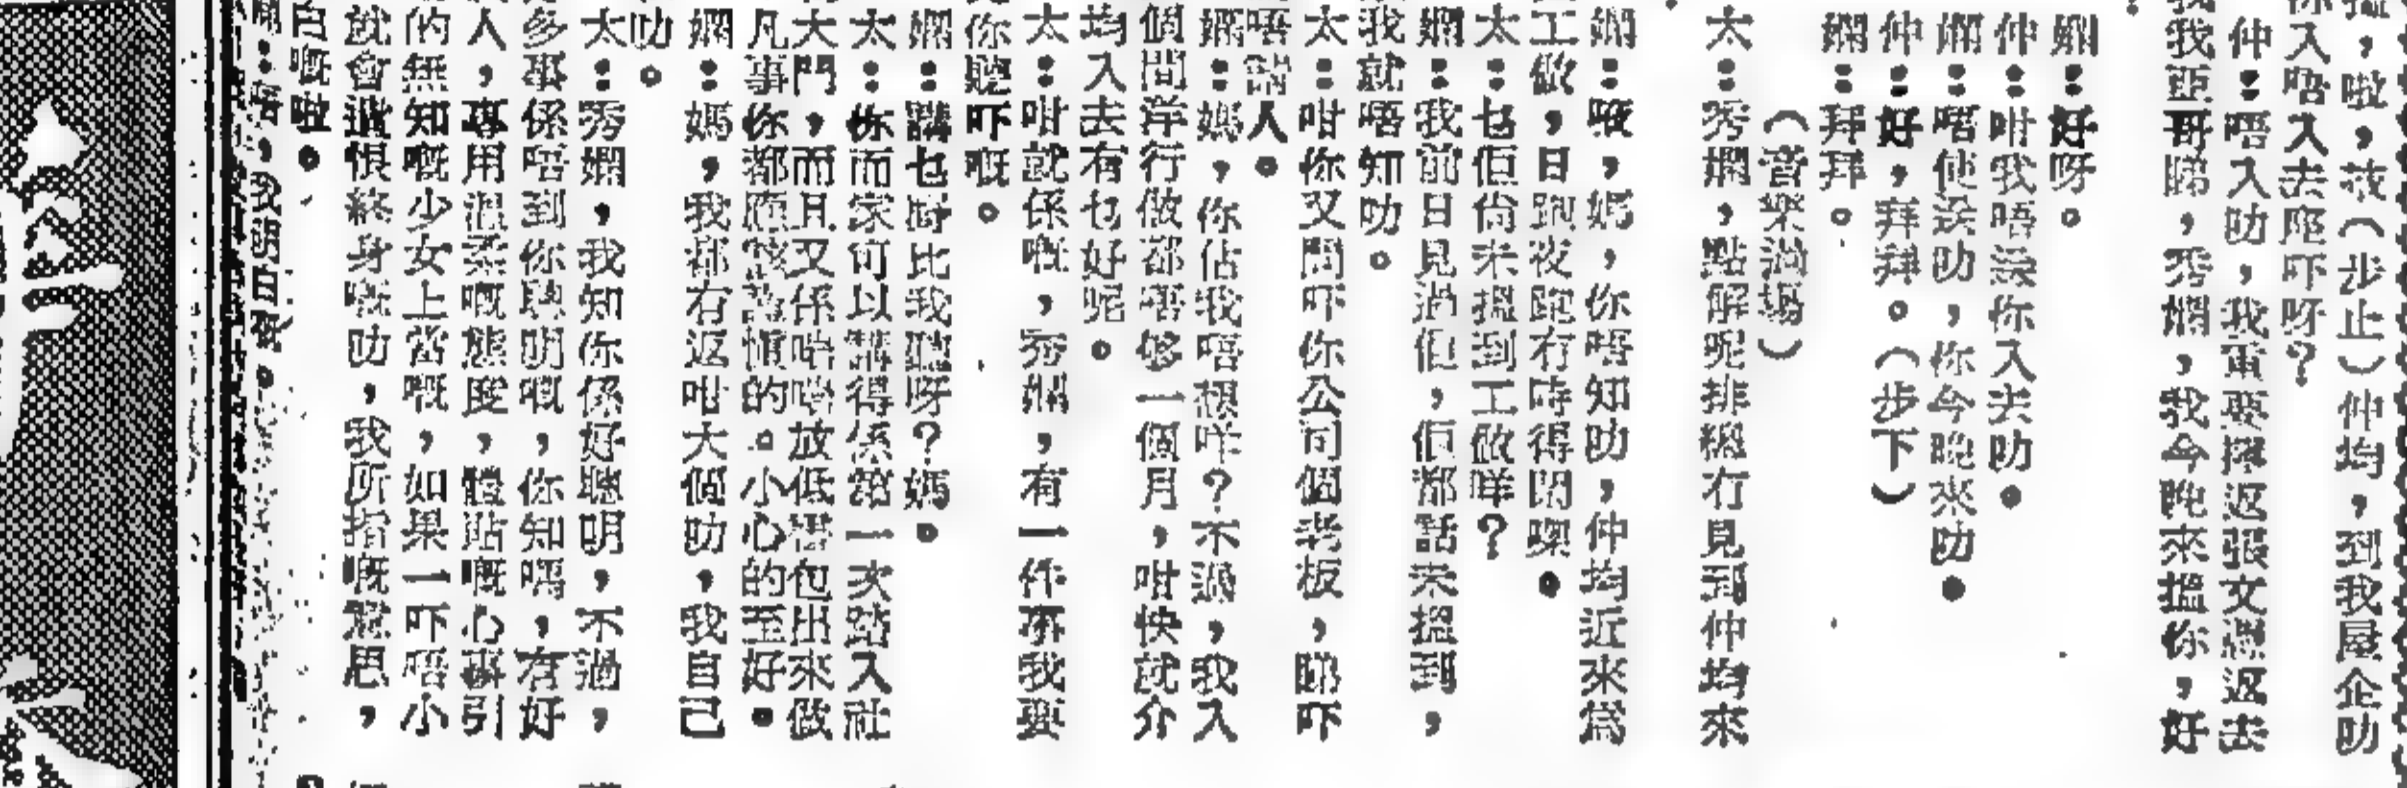 搵,啦,哉(步止)仲均,到我屋企叻
你入唔入去座吓呀?
仲:唔入叻,我重要擰返張文憑返去
我亞哥睇,秀嫻,我今晚來搵你,好
嫻:好呀。
仲:咁我唔送你入去叻。
嫻:唔使送叻,你今晚來叻。
仲:好,拜拜。(步下)
嫻:拜拜。
(音樂過場)
太:秀嫻,點解呢排總冇見到仲均來
嫻:哦,媽,你唔知叻,仲均近來爲
工做,日跑夜跑冇時得閒㗎。
太:乜佢尚未搵到工做咩?
嫻:我前日見過佢,佢都話未搵到,
我就唔知叻。
太:咁你又問吓你公司個老板,睇吓
唔請人。
嫻:媽,你估我唔想咩?不過,我入
個間洋行做都唔够一個月,咁快就介
均入去有乜好呢。
太:咁就係嘅,秀嫻,有一件事我要
你聽吓嘅。
嫻:講乜嘢比我聽呀?媽。
太:你而家可以講得係第一次踏入社
大門,而且又係啱啱放低書包出來做
凡事你都應該謹慎的。小心的至好。
嫻:媽,我都冇返咁大個叻,我自己
叻。
太:秀嫻,我知你係好聰明,不過,
多事係唔到你聰明嘅,你知唔,有好
人,專用溫柔嘅態度,體貼嘅心事引
的無知嘅少女上當嘅,如果一吓唔小
就會遺恨終身嘅叻,我所指嘅意思,
白嘅啦。
嫻:唔,我明白嘅。